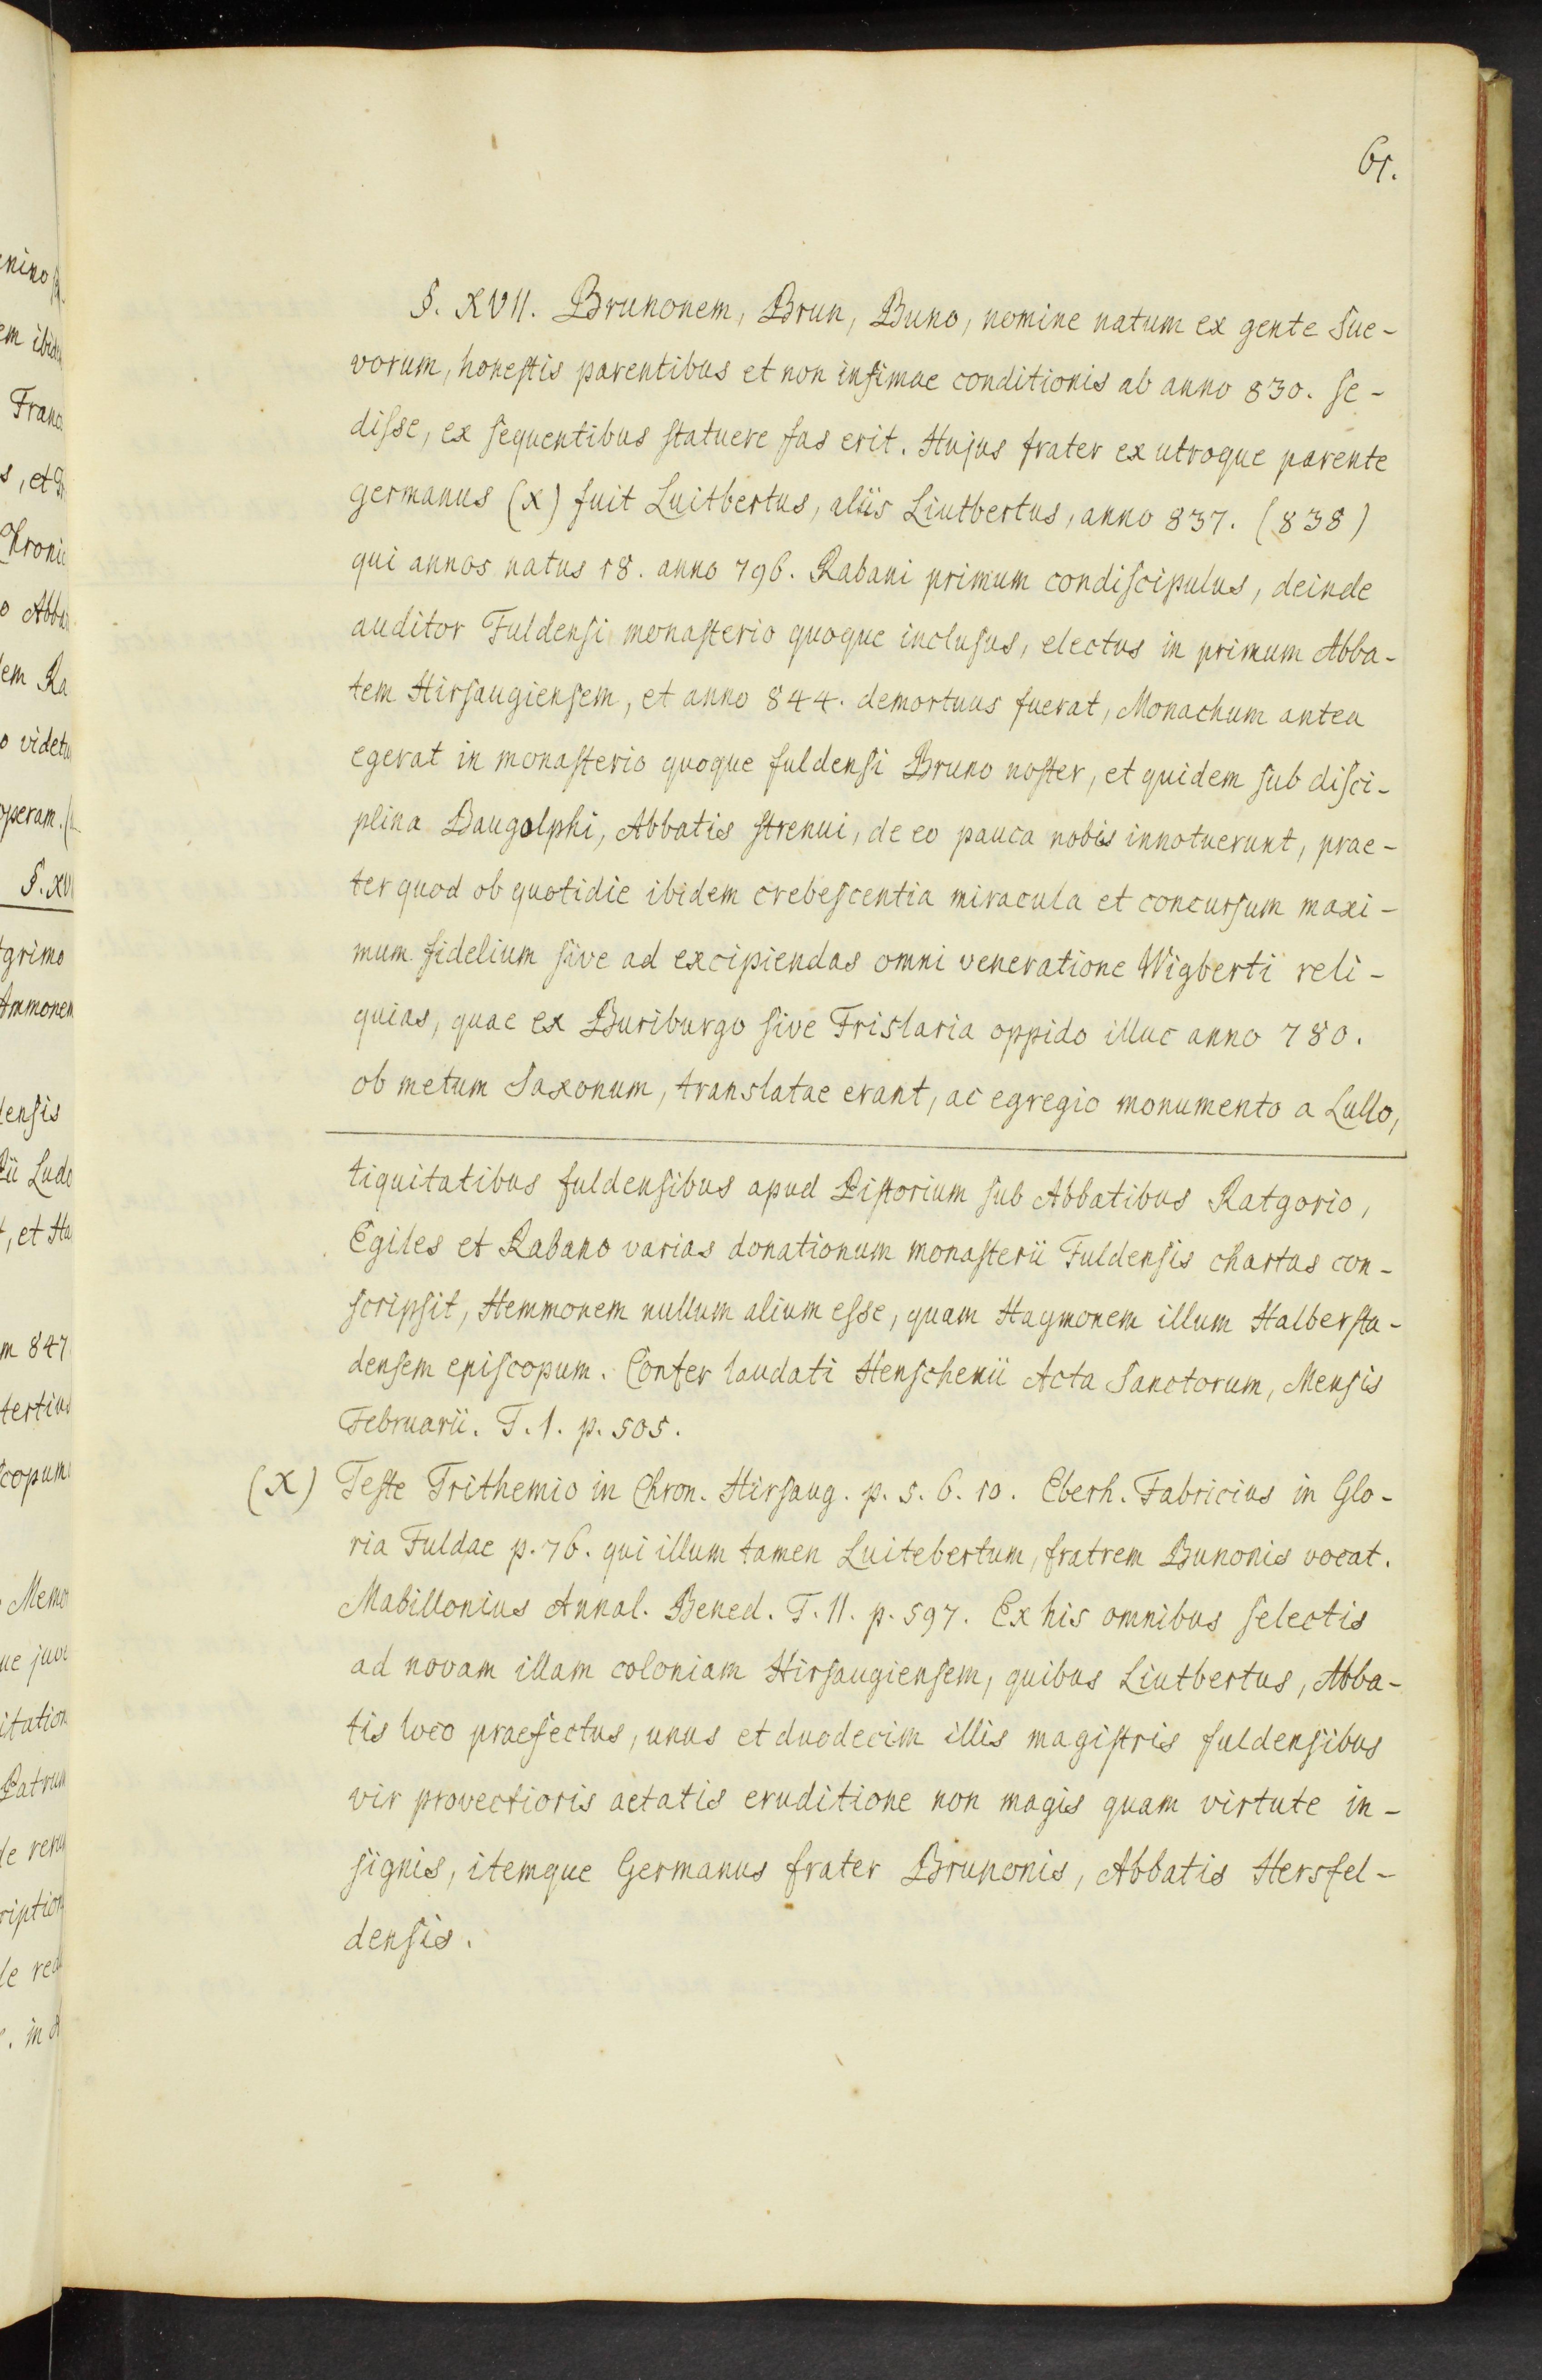 61.
§. XVII. Brunonem, Brun, Buno, nomine natum ex gente Sue-
vorum, honestis parentibus et non infimae conditionis ab anno 830. se-
disse, ex sequentibus statuere fas erit. Hujus frater ex utroque parente
germanus (x) fuit Luitbertus, aliis Liutbertus, anno 837. (838)
qui annos natus 18. anno 796. Rabani primum condiscipulus, deinde
auditor Fuldensi monasterio quoque inclusus, electus in primum Abba-
tem Hirsaugiensem, et anno 844. demortuus fuerat, Monachum antea
egerat in monasterio quoque fuldensi Bruno noster, et quidem sub disci-
plina Baugolphi, Abbatis strenui, de eo pauca nobis innotuerunt, prae-
ter quod ob quotidie ibidem crebescentia miracula et concursum maxi-
mum fidelium sive ad excipiendas omni veneratione Wigberti reli-
quias, quae ex Buriburgo sive Frislaria oppido illuc anno 780.
ob metum Saxonum, translatae erant, ac egregio monumento a Lullo,
tiquitatibus fuldensibus apud Pistorium sub Abbatibus Ratgorio,
Egiles et Rabano varias donationum monasterii Fuldensis chartas con-
scripsit, Hemmonem nullum alium esse, quam Haymonem illum Halbersta-
densem episcopum. Confer laudati Henschenii Acta Sanctorum, Mensis
Februarii. T. 1. p. 505.
(x) Teste Trithemio in Chron. Hirsaug. p. 5. 6. 10. Eberh. Fabricius in Glo-
ria Fuldae p. 76. qui illum tamen Luitebertum, fratrem Bunonis vocat.
Mabillonius Annal. Bened. T. 11. p. 597. Ex his omnibus selectis
ad novam illam coloniam Hirsaugiensem, quibus Liutbertus, Abba-
tis loco praefectus, unus et duodecim illis magistris fuldensibus
vir provectioris aetatis eruditione non magis quam virtute in-
signis, itemque Germanus frater Brunonis, Abbatis Hersfel-
densis.